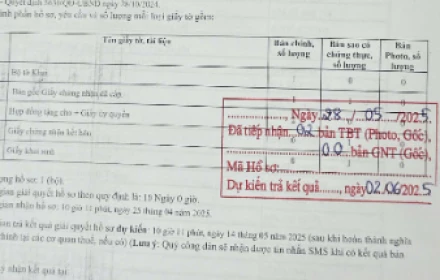 Quyết định 3636/QĐ-UBND ngày 28/10/2024.
phần hồ sơ, yêu cầu và số lượng mỗi loại giấy tờ gồm:
Tên giấy tờ, tài liệu
Bản chính, số lượng
Bản sao có chứng thực, số lượng
Bản Photo, số lượng
Bộ tờ Khai
0
0
Bản gốc Giấy chứng nhận đã cấp
Hợp đồng tặng cho - Giấy ủy quyền
Giấy chứng nhận kết hôn
Giấy khai sinh
Ngày 28 / 05 /2025.
Đã tiếp nhận 02 bản TBT (Photo, Gốc),
00 bản GNT (Gốc),
Mã Hồ sơ:
Dự kiến trả kết quả......, ngày 02.06/2025
hồ sơ: 1 (bộ).
gian giải quyết hồ sơ theo quy định là: 15 Ngày 0 giờ.
gian nhận hồ sơ: 10 giờ 11 phút, ngày 25 tháng 04 năm 2025.
gian trả kết quả giải quyết hồ sơ dự kiến: 10 giờ 11 phút, ngày 14 tháng 05 năm 2025 (sau khi hoàn thành nghĩa
chính tại các cơ quan thuế, nếu có) (Lưu ý: Quý công dân sẽ nhận được tin nhắn SMS khi có kết quả bản
nhận kết quả tại